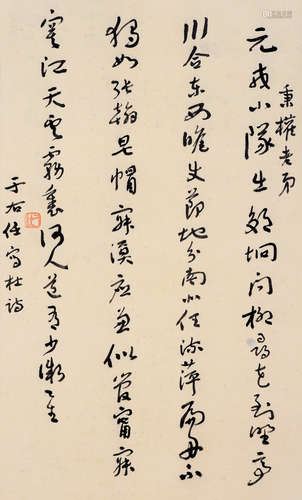 秉權老弟
元戎小隊出郊坰問柳尋花到野亭
川合東西瞻使節地分南北任流萍扁舟不
獨如張翰皂帽寂漠應兼似管寧寂
寞江天雲霧裏何人道有少微星
于右任寫杜詩